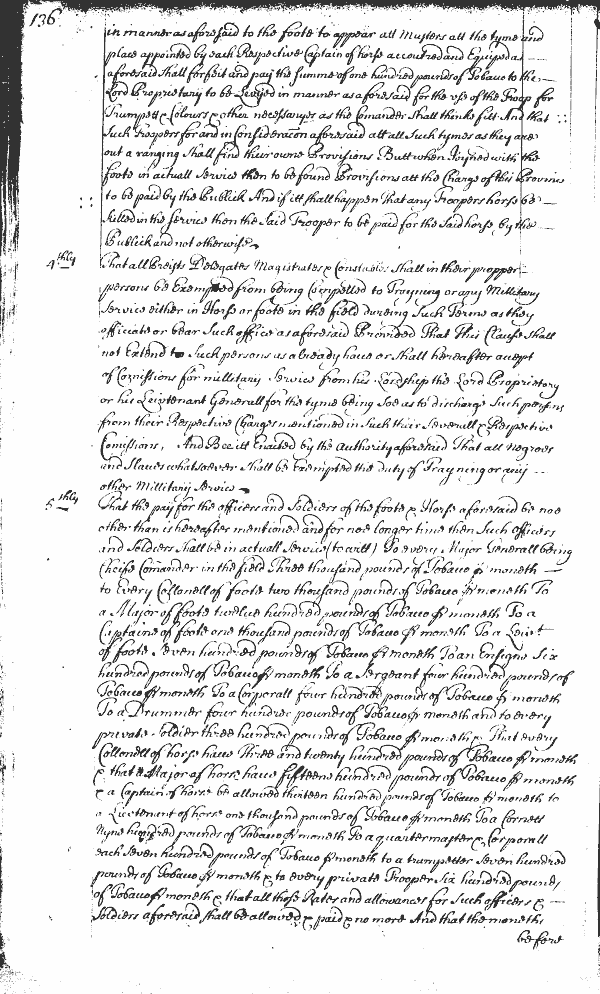 136
in manner as aforesaid to the foote to appear att Musters att the tyme and
place appointed by each Respective Captain of horse accoutred and Equiped as
aforesaid Shall forfeit and pay the summe of one hundred pounds of Tobaco to the
Lord Proprietary to be Levyed in manner as aforesaid for the use of the Troop for
Trumpett Colours & other necessaryes as the Comander Shall thinke fitt And that
Such Troopers for and in Consideracon aforesaid att all Such tymes as they are
out a ranging Shall find their owne Provisions Butt when Joyned with the
foote in actuall Service then to be found Provisions att the Charge of this Province
to be paid by the Publick And if itt shall happen That any Troopers horse be
killed in the service then the Said Trooper to be paid for the Said horse by the
Publick and not otherwise
4thly That all Preists Delegates Magistrates & Constables Shall in their propper
persons be Exempted from being Compelled to Trayning or any Millitary
Service either in Horse or foote in the field dureing Such Terme as they
officiate or bear Such office as aforesaid Provided That This Clause shall
not Extend to Such persons as already have or shall hereafter accept
of Comissions for millitary Service from his Lordship the Lord Proprietary
or his Lieutenant Generall for the tyme being Soe as to discharge Such persons
from their Respective Charges mentioned in Such their Severall & Respective
Comissions, And Bee itt Enacted by the Authority aforesaid That all Negroes
and Slaves whatsoever Shall be Exempted the duty of Trayning or any
other Millitary Service
5thly That the pay for the officers and Soldiers of the foote & Horse aforesaid be noe
other than is hereafter mentioned and for noe longer time then Such officers
and Soldiers Shall be in actuall Service (to witt) To every Major Generall being
Cheife Comander in the field Three thousand pounds of Tobaco p moneth
to Every Collonell of foote two thousand pounds of Tobaco p moneth To
a Major of foote twelve hundred pounds of Tobaco p moneth To a
Captaine of foote one thousand pounds of Tobaco p moneth To a Leiut
of foote Seven hundred pounds of Tobaco p moneth To an Ensigne Six
hundred pounds of Tobaco p moneth To a Sergeant four hundred pounds of
Tobaco p moneth To a Corporall four hundred pounds of Tobaco p moneth
To a Drummer four hundred pounds of Tobaco p moneth and to every
private Soldier three hundred pounds of Tobaco p moneth & That every
Collonell of horse have Three and twenty hundred pounds of Tobaco p moneth
& that a Major of horse have fifteene hundred pounds of Tobaco p moneth
& a Captain of horse be allowed thirteen hundred pounds of Tobaco p moneth to
a Lieutenant of horse one thousand pounds of Tobaco p moneth To a Cornett
Nyne hundred pounds of Tobaco p moneth To a quartermaster & Corporall
each Seven hundred pounds of Tobaco p moneth to a trumpetter Seven hundred
pounds of Tobaco p moneth & to every private Trooper Six hundred pounds
of Tobaco p moneth & that all those Rates and allowances for Such officers &
Soldiers aforesaid shall be allowed & paid & no more And that the moneths
before